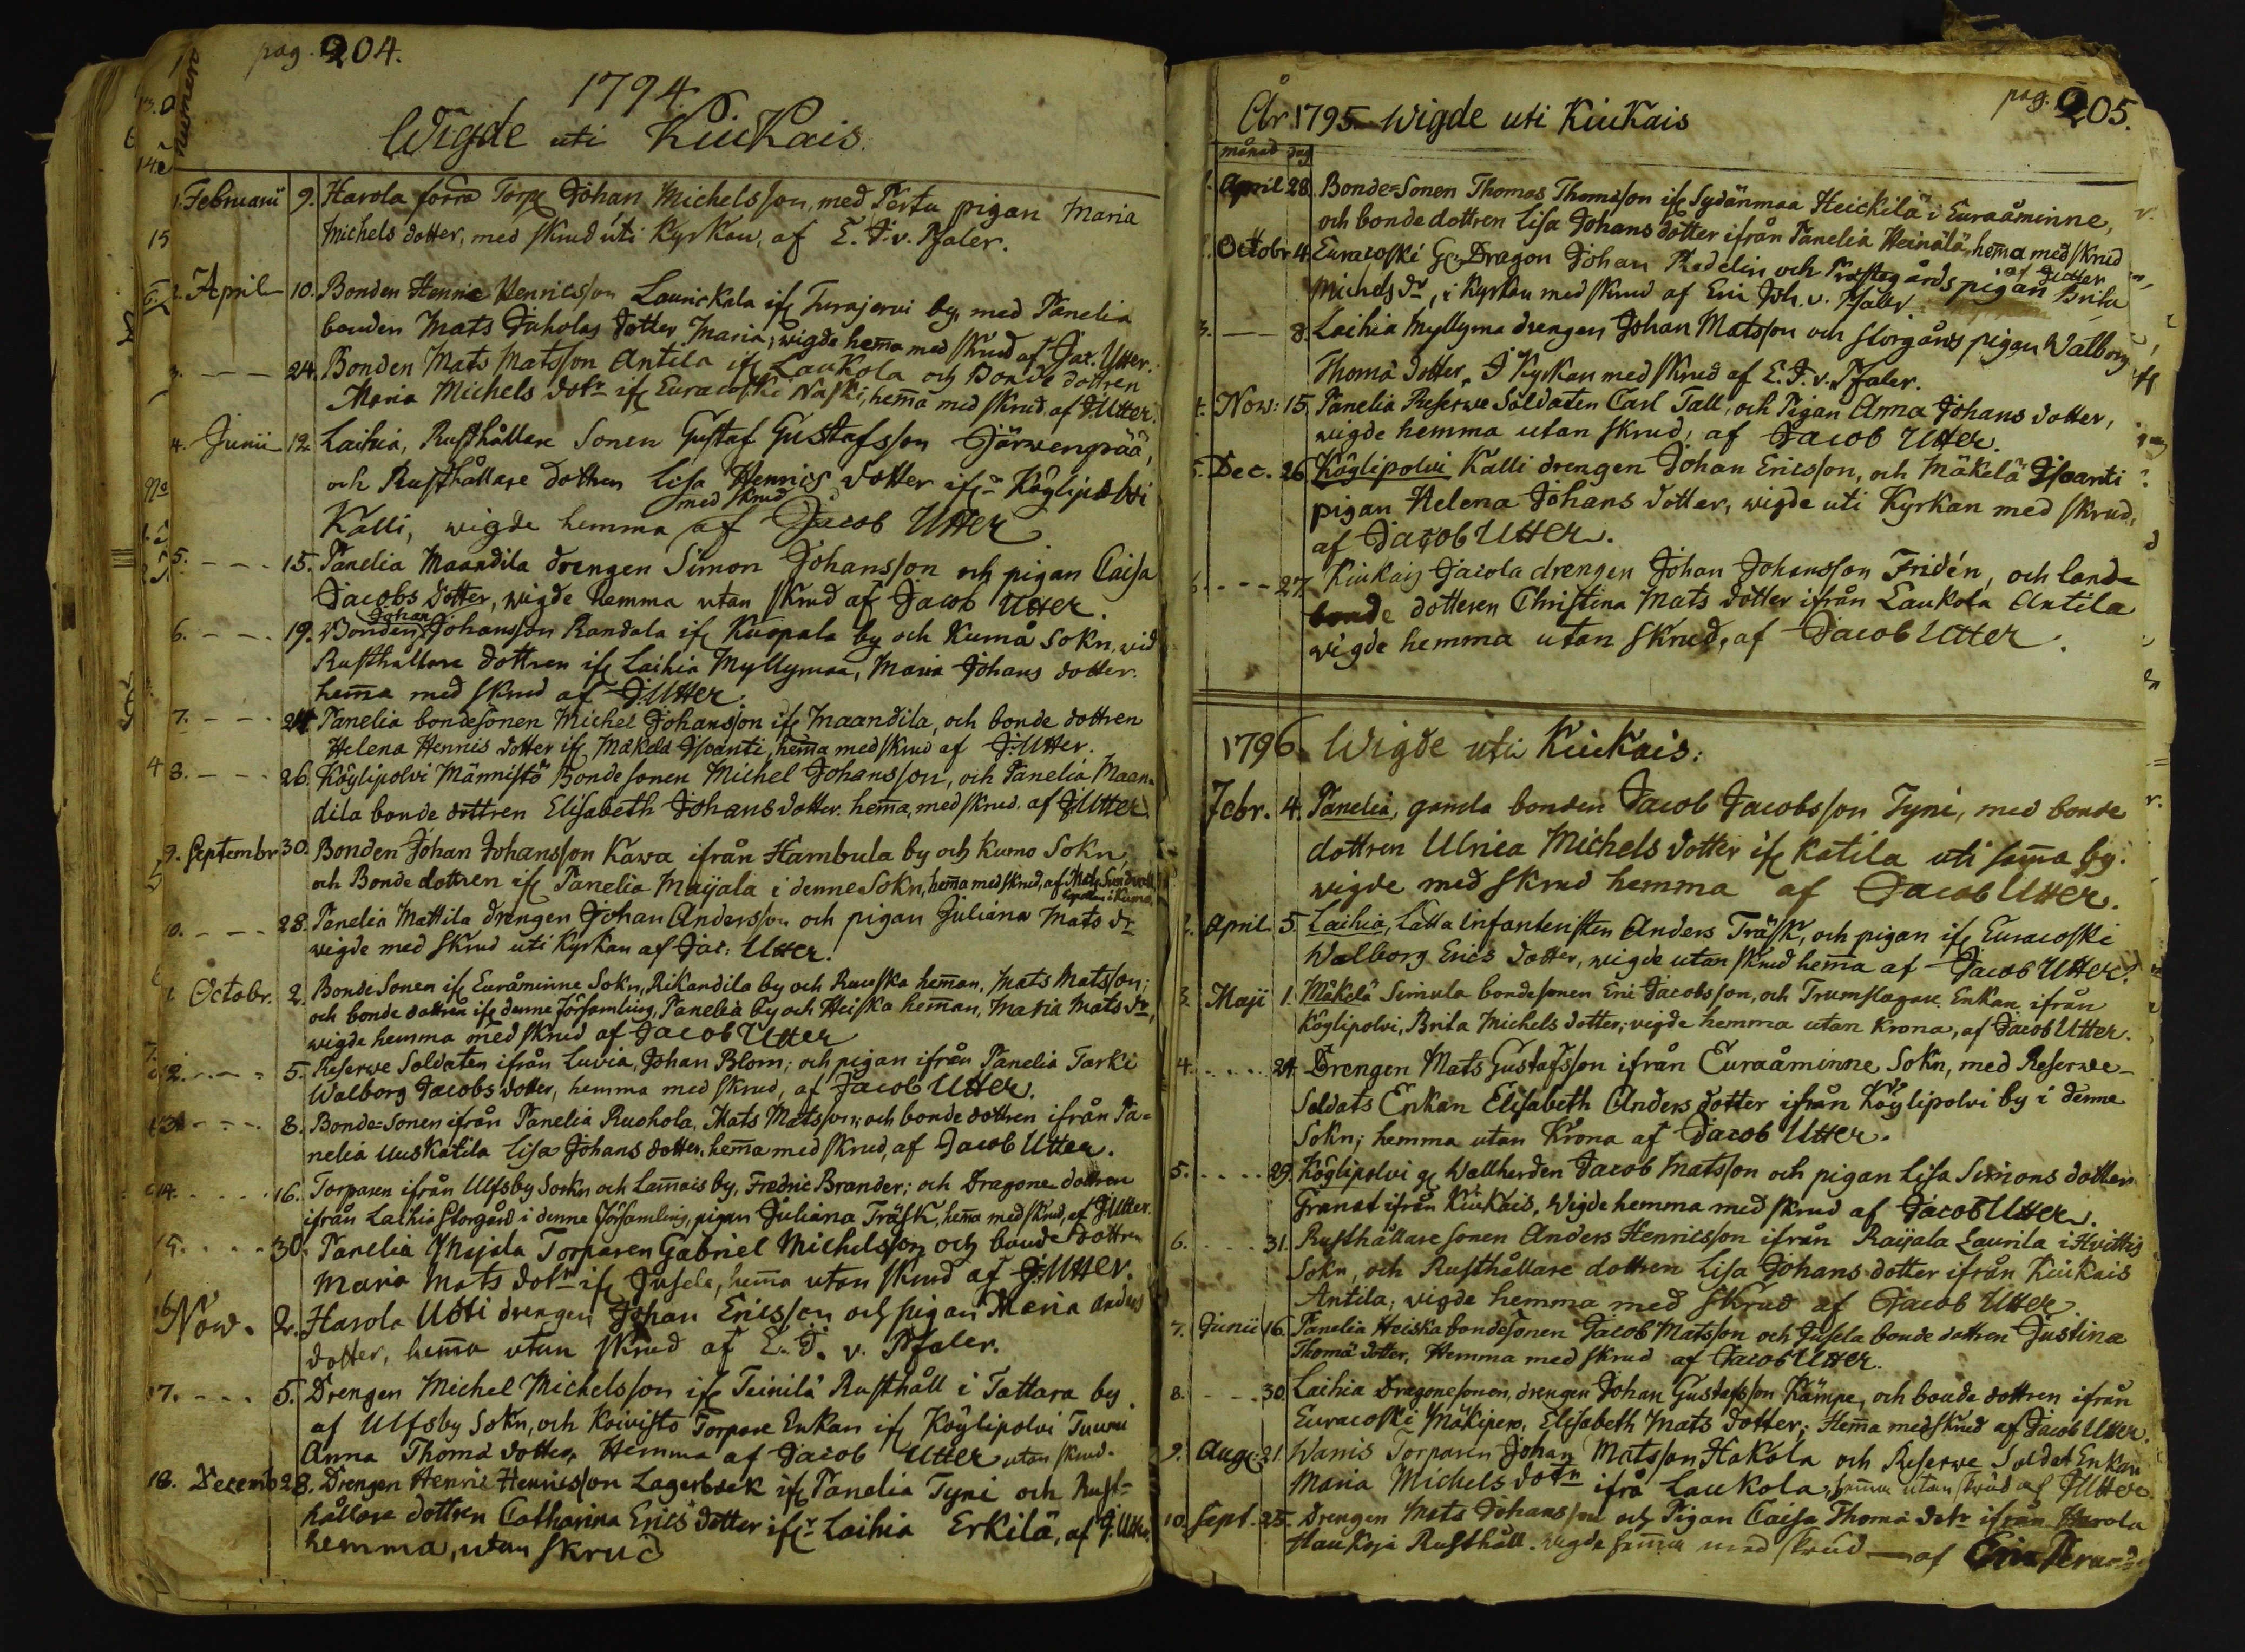 pag. 204.
1794.
Wigde uti Kiukais.
1. Februarii 9. Harola förra Torp Johan Michelsson, med Pertu pigan Maria
Michels dotter, med skrud uti Kyrkan, af E. J. v. Pfaler.
2. April 10. Bonden Henric Henricsson Laurickala ifr Turajervi by, med Panelia
bonden Mats Juholas dotter Maria, wigde hema med skrud af Jac. Utter.
3. - - - 24. Bonden Mats Matsson Antila ifr Laukola och Bonde dottren
Maria Michels dotr ifr Euracoski Naski, hema med skrud af J. Utter.
4. Junii 12. Laihia, Rusthållare Sonen Gustaf Gustafsson Järwenpää,
och Rusthållare dottren Lisa Henrics dotter ifr Köylipolvi
med skrud
Kalli, wigde hemma af Jacob Utter
5. - - - 15. Panelia Maandila drengen Simon Johansson och pigan Caisa
Jacobs dotter, wigde hemma utan skrud af Jacob Utter.
Johan
6. - - - 19. Bonden Johansson Randala ifr Kuopala by och Kumå Sokn, vid
Rusthållare dottren ifr Laihia Myllymaa, Maria Johans dotter.
hema med skrud af J. Utter.
7. - - - 24. Panelia bondesonen Michel Johansson ifr Maandila, och bonde dottren
Helena Henrics dotter ifr Mäkelä Isoanti, hema med skrud af J. Utter.
8. - - - 26. Köylipolvi Männistö Bonde sonen Michel Johansson, och Panelia Maan=
dila bonde dottren Elisabeth Johans dotter. hema, med skrud. af J. Utter.
9. Septembr 30. Bonden Johan Johansson Kawa ifrån Hambula by och Kumo Sokn,
och Bonde dottren ifr Panelia Maijala i denne Sokn, hema med skrud, af
10. - - - 28. Panelia Mattila drengen Johan Andersson och pigan Juliana Mats dr
wigde med skrud uti Kyrkan af Jac: Utter.
1. Octobr. 2. Bonde Sonen ifr Euråminne Sokn, Rikandila by och Rauska heman, Mats Matsson;
och bonde dottren ifr denne Församling, Panelia by och Heiska heman, Maria Mats dr,
wigde hemma med skrud af Jacob Utter
12. - - - 5. Reserve Soldaten ifrån Luvia, Johan Blom; och pigan ifrån Panelia Tarki
Walborg Jacobs dotter, hemma med skrud, af Jacob Utter.
13. - - - 8. Bonde=Sonen ifrån Panelia Ruohola, Mats Matsson; och bonde dottren ifrån Pa=
nelia Uuskatila Lisa Johans dotter. hema med skrud, af Jacob Utter.
14. - - - 16. Torparen ifrån Ulfsby Sockn och Lamais by, Fredric Brander; och Dragone dottren
ifrån Laihia Storgård i denne Församling, pigan Juliana Träsk, hema med skrud, af J Utter.
15. - - - 30. Panelia Majala Torparen Gabriel Michelsson och bonde dottren
Maria Mats dotr ifr Jusela, hema utan skrud af J. Utter.
16. Now. 2. Harola Uoti drengen Johan Ericsson och pigan Maria Anders
dotter, hema utan skrud af E. J. v. Pfaler.
17. - - - 5. Drengen Michel Michelsson ifr Teinilä Rusthåll i Tattara by
af Ulfsby Sokn, och Koivisto Torpare Enkan ifr Köylipolvi Tuuna
Anna Thomä dotter, Hemma af Jacob Utter utan skrud.
18. Decemb 28. Drengen Henric Henricsson Lagerbeck ifr Panelia Tyni och Rust=
hållare dottren Catharina Erics dotter ifr Laihia Erkilä, af J. Utter,
hemma, utan skrud
pag. 205.
År 1795 Wigde uti Kiukais
månad dag
1. April 28. Bonde=Sonen Thomas Thomasson ifr Sydänmaa Heickilä i Euraåminne,
och bonde dottren Lisa Johans dotter ifrån Panelia Heinälä, hema med skrud
af Jutter
Octobr 4. Euracoski Dragon Johan Rodelin och Prostegårds pigan Brita
Michels dr, i Kyrkan med skrud af Eric Joh. v. Pfaler.
3. - - 8. Laihia Myllyma drengen Johan Matsson och Storgårds pigan Walborg
Thomä dotter, I Kyrkan med skrud af E. J. v. Pfaler.
4. Now: 15. Panelia Reserve Soldaten Carl Tall, och Pigan Anna Johans dotter,
wigde hemma utan skrud, af Jacob Utter.
5. Dec. 26. Köylipolvi Kalli drengen Johan Ericsson, och Mäkelä Isoanti
pigan Helena Johans dotter, wigde uti Kyrkan med skrud,
af Jacob Utter.
6. - - - 27. Kiukais Jacola drengen Johan Johansson Fridén, och land=
bonde dotteren Christina Mats dotter ifrån Laukola Antila
wigde hemma utan skrud, af Jacob Utter.
1796. Wigde uti Kiukais:
Febr. 4. Panelia, gamla bonden Jacob Jacobsson Tyni, med bonde
dottren Ulrica Michels dotter ifr Katila uti sama by.
wigde med skrud hemma af Jacob Utter.
2. April 5. Laihia, Lätta Infanteristen Anders Träsk, och pigan ifr Euracoski
Walborg Erics dotter, wigde utan skrud hema af Jacob Utter.
3. Maji 1. Mäkelä Simula bondesonen Eric Jacobsson, och Trumslagare Enkan ifrån
Köylipolvi, Brita Michels dotter; wigde hemma utan Krona, af Jacob Utter.
4. - - - 24. Drengen Mats Gustafsson ifrån Euraåminne Sokn, med Reserve=
Soldats Enkan Elisabeth Anders dotter ifrån Köylipolvi by i denne
Sokn; hemma utan Krona af Jacob Utter.
5. - - - 29. Köylipolvi Wallherden Jacob Matsson och pigan Lisa Simons dotter
Granat ifrån Kiukais, wigde hemma med skrud af Jacob Utter.
6. - - - 31. Rusthållare sonen Anders Henricsson ifrån Raijala Laurila i Hvittis
Sokn, och Rusthållare dottren Lisa Johans dotter ifrån Kiukais
Antila, wigde hemma med skrud af Jacob Utter.
7. Junii 16. Panelia Heiska bondesonen Jacob Matsson och Jusela bonde dottren Justina
Thomä dotter, Hemma med skrud af Jacob Utter.
8. - - - 30. Laihia Dragonesonen, drengen Johan Gustafsson Kämpe, och bonde dottren ifrån
Euracoski Mäkipere, Elisabeth Mats dotter; Hema med skrud af Jacob Utter.
9. Aug: 21. Wanis Torparen Johan Matsson Hakola och Reserve Soldat Enkan
Maria Michels dotr ifrå Laukola, hema utan skrud af J Utter
10. Sept. 25. Drengen Mats Johansson och Pigan Caisa Thomä dotr ifrån Harola
Haukoja Rusthåll. wigde hema med skrud — af Eric